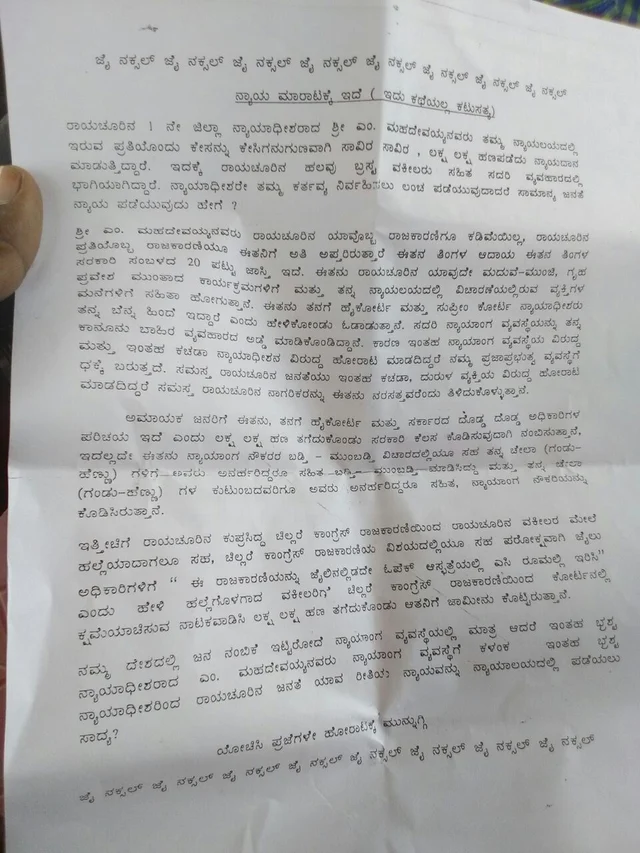 ಜೈ ನಕ್ಸಲ್ ಜೈ ನಕ್ಸಲ್ ಜೈ ನಕ್ಸಲ್ ಜೈ ನಕ್ಸಲ್ ಜೈ ನಕ್ಸಲ್ ಜೈ ನಕ್ಸಲ್ ಜೈ ನಕ್ಸಲ್ ಜೈ ನಕ್ಸಲ್
ನ್ಯಾಯ ಮಾರಾಟಕ್ಕೆ ಇದೆ ( ಇದು ಕಥೆಯಲ್ಲ ಕಟುಸತ್ಯ)
ರಾಯಚೂರಿನ 1 ನೇ ಜಿಲ್ಲಾ ನ್ಯಾಯಾಧೀಶರಾದ ಶ್ರೀ ಎಂ. ಮಹದೇವಯ್ಯನವರು ತಮ್ಮ ನ್ಯಾಯಲಯದಲ್ಲಿ
ಇರುವ ಪ್ರತಿಯೊಂದು ಕೇಸನ್ನು ಕೇಸಿಗನುಗುಣವಾಗಿ ಸಾವಿರ ಸಾವಿರ , ಲಕ್ಷ ಲಕ್ಷ ಹಣಪಡೆದು ನ್ಯಾಯದಾನ
ಮಾಡುತ್ತಿದ್ದಾರೆ. ಇದಕ್ಕೆ ರಾಯಚೂರಿನ ಹಲವು ಬ್ರಸ್ಟ ವಕೀಲರು ಸಹಿತ ಸದರಿ ವ್ಯವಹಾರದಲ್ಲಿ
ಭಾಗಿಯಾಗಿದ್ದಾರೆ. ನ್ಯಾಯಾಧೀಶರೇ ತಮ್ಮ ಕರ್ತವ್ಯ ನಿರ್ವಹಿಸಲು ಲಂಚ ಪಡೆಯುವುದಾದರೆ ಸಾಮಾನ್ಯ ಜನತೆ
ನ್ಯಾಯ ಪಡೆಯುವುದು ಹೇಗೆ ?
ಶ್ರೀ ಎಂ. ಮಹದೇವಯ್ಯನವರು ರಾಯಚೂರಿನ ಯಾವೊಬ್ಬ ರಾಜಕಾರಣಿಗೂ ಕಡಿಮೆಯಿಲ್ಲ, ರಾಯಚೂರಿನ
ಪ್ರತಿಯೊಬ್ಬ ರಾಜಕಾರಣಿಯೂ ಈತನಿಗೆ ಅತಿ ಅಪ್ತರಿರುತ್ತಾರೆ ಈತನ ತಿಂಗಳ ಆದಾಯ ಈತನ ತಿಂಗಳ
ಸರಕಾರಿ ಸಂಬಳದ 20 ಪಟ್ಟು ಜಾಸ್ತಿ ಇದೆ. ಈತನು ರಾಯಚೂರಿನ ಯಾವುದೇ ಮದುವೆ-ಮುಂಜಿ, ಗೃಹ
ಪ್ರವೇಶ ಮುಂತಾದ ಕಾರ್ಯಕ್ರಮಗಳಿಗೆ ಮತ್ತು ತನ್ನ ನ್ಯಾಯಲಯದಲ್ಲಿ ವಿಚಾರಣೆಯಲ್ಲಿರುವ ವ್ಯಕ್ತಿಗಳ
ಮನೆಗಳಿಗೆ ಸಹಿತಾ ಹೋಗುತ್ತಾನೆ. ಈತನು ತನಗೆ ಹೈಕೋರ್ಟ ಮತ್ತು ಸುಪ್ರೀಂ ಕೋರ್ಟ ನ್ಯಾಯಾಧೀಶರು
ತನ್ನ ಬೆನ್ನ ಹಿಂದೆ ಇದ್ದಾರೆ ಎಂದು ಹೇಳಿಕೊಂಡು ಓಡಾಡುತ್ತಾನೆ. ಸದರಿ ನ್ಯಾಯಾಂಗ ವ್ಯವಸ್ಥೆಯನ್ನು ತನ್ನ
ಕಾನೂನು ಬಾಹಿರ ವ್ಯವಹಾರದ ಅಡ್ಡೆ ಮಾಡಿಕೊಂಡಿದ್ದಾನೆ. ಕಾರಣ ಇಂತಹ ನ್ಯಾಯಾಂಗ ವ್ಯವಸ್ಥೆಯ ವಿರುದ್ಧ
ಮತ್ತು ಇಂತಹ ಕಚಡಾ ನ್ಯಾಯಾಧೀಶನ ವಿರುದ್ಧ ಹೋರಾಟ ಮಾಡದಿದ್ದರೆ ನಮ್ಮ ಪ್ರಜಾಪ್ರಭುತ್ವ ವ್ಯವಸ್ಥೆಗೆ
ಧಕ್ಕೆ ಬರುತ್ತದೆ. ಸಮಸ್ತ ರಾಯಚೂರಿನ ಜನತೆಯು ಇಂತಹ ಕಚಡಾ, ದುರುಳ ವ್ಯಕ್ತಿಯ ವಿರುದ್ದ ಹೋರಾಟ
ಮಾಡದಿದ್ದರೆ ಸಮಸ್ತ ರಾಯಚೂರಿನ ನಾಗರಿಕರನ್ನು ಈತನು ನರಸತ್ತವರೆಂದು ತಿಳಿದುಕೊಳ್ಳುತ್ತಾನೆ.
ಅಮಾಯಕ ಜನರಿಗೆ ಈತನು, ತನಗೆ ಹೈಕೋರ್ಟ ಮತ್ತು ಸರ್ಕಾರದ ದೊಡ್ಡ ದೊಡ್ಡ ಅಧಿಕಾರಿಗಳ
ಪರಿಚಯ ಇದೆ ಎಂದು ಲಕ್ಷ ಲಕ್ಷ ಹಣ ತಗೆದುಕೊಂಡು ಸರಕಾರಿ ಕೆಲಸ ಕೊಡಿಸುವುದಾಗಿ ನಂಬಿಸುತ್ತಾನೆ.
ಇದಲ್ಲದೇ ಈತನು ನ್ಯಾಯಾಂಗ ನೌಕರರ ಬಡ್ತಿ – ಮುಂಬಡ್ತಿ ವಿಚಾರದಲ್ಲಿಯೂ ಸಹ ತನ್ನ ಚೇಲಾ (ಗಂಡು-
ಹೆಣ್ಣು) ಗಳಿಗೆ ಅವರು ಅನರ್ಹರಿದ್ದರೂ ಸಹಿತ ಬಡ್ತಿ- ಮುಂಬಡ್ತಿ ಮಾಡಿಸಿದ್ದು ಮತ್ತು ತನ್ನ ಚೇಲಾ
(ಗಂಡು-ಹೆಣ್ಣು) ಗಳ ಕುಟುಂಬದವರಿಗೂ ಅವರು ಅನರ್ಹರಿದ್ದರೂ ಸಹಿತ, ನ್ಯಾಯಾಂಗ ನೌಕರಿಯನ್ನು
ಕೊಡಿಸಿರುತ್ತಾನೆ.
ಇತ್ತೀಚಿಗೆ ರಾಯಚೂರಿನ ಕುಪ್ರಸಿದ್ದ ಚಿಲ್ಲರೆ ಕಾಂಗ್ರೆಸ್ ರಾಜಕಾರಣಿಯಿಂದ ರಾಯಚೂರಿನ ವಕೀಲರ ಮೇಲೆ
ಹಲ್ಲೆಯಾದಾಗಲೂ ಸಹ, ಚಿಲ್ಲರೆ ಕಾಂಗ್ರೆಸ್ ರಾಜಕಾರಣಿಯ ವಿಶಯದಲ್ಲಿಯೂ ಸಹ ಪರೋಕ್ಷವಾಗಿ ಜೈಲು
ಅಧಿಕಾರಿಗಳಿಗೆ “ ಈ ರಾಜಕಾರಣಿಯನ್ನು ಜೈಲಿನಲ್ಲಿಡದೇ ಓಪೆಕ್ ಆಸ್ಪತ್ರೆಯಲ್ಲಿ ಎಸಿ ರೂಮಲ್ಲಿ ಇರಿಸಿ”
ಎಂದು ಹೇಳಿ ಹಲ್ಲೆಗೊಳಗಾದ ವಕೀಲರಿಗೆ ಚಿಲ್ಲರೆ ಕಾಂಗ್ರೆಸ್ ರಾಜಕಾರಣಿಯಿಂದ ಕೋರ್ಟನಲ್ಲಿ
ಕ್ಷಮೆಯಾಚಿಸುವ ನಾಟಕವಾಡಿಸಿ ಲಕ್ಷ ಲಕ್ಷ ಹಣ ತಗೆದುಕೊಂಡು ಆತನಿಗೆ ಜಾಮೀನು ಕೊಟ್ಟಿರುತ್ತಾನೆ.
ನಮ್ಮ ದೇಶದಲ್ಲಿ ಜನ ನಂಬಿಕೆ ಇಟ್ಟಿರೋದೆ ನ್ಯಾಯಾಂಗ ವ್ಯವಸ್ಥೆಯಲ್ಲಿ ಮಾತ್ರ ಆದರೆ ಇಂತಹ ಭ್ರಶ್ಟ
ನ್ಯಾಯಾಧೀಶರಾದ ಎಂ. ಮಹದೇವಯ್ಯನವರು ನ್ಯಾಯಾಂಗ ವ್ಯವಸ್ಥೆಗೆ ಕಳಂಕ ಇಂತಹ ಭ್ರಶ್ಟ
ನ್ಯಾಯಾಧೀಶರಿಂದ ರಾಯಚೂರಿನ ಜನತೆ ಯಾವ ರೀತಿಯ ನ್ಯಾಯವನ್ನು ನ್ಯಾಯಾಲಯದಲ್ಲಿ ಪಡೆಯಲು
ಸಾದ್ಯ?
ಯೋಚಿಸಿ ಪ್ರಜೆಗಳೇ ಹೋರಾಟಕ್ಕೆ ಮುನ್ನುಗ್ಗಿ
ಜೈ ನಕ್ಸಲ್ ಜೈ ನಕ್ಸಲ್ ಜೈ ನಕ್ಸಲ್ ಜೈ ನಕ್ಸಲ್ ಜೈ ನಕ್ಸಲ್ ಜೈ ನಕ್ಸಲ್ ಜೈ ನಕ್ಸಲ್ ಜೈ ನಕ್ಸಲ್